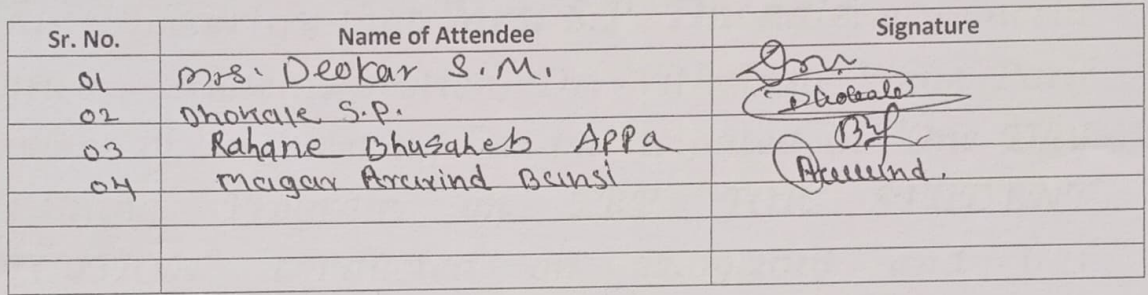 Sr. No. Name of Attendee Signature
01 Mrs. Deokar S.M.
02 Dhokale S.P. Dhokale
03 Rahane Bhusaheb Appa
04 Magar Aravind Bansi Aravind.